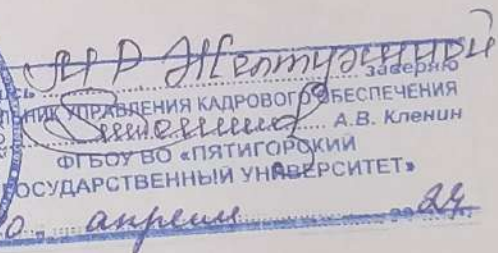 Желтухиной
заверяю
УПРАВЛЕНИЯ КАДРОВОГО ОБЕСПЕЧЕНИЯ
А.В. Кленин
ФГБОУ ВО «ПЯТИГОРСКИЙ
ОСУДАРСТВЕННЫЙ УНИВЕРСИТЕТ»
апреля 24